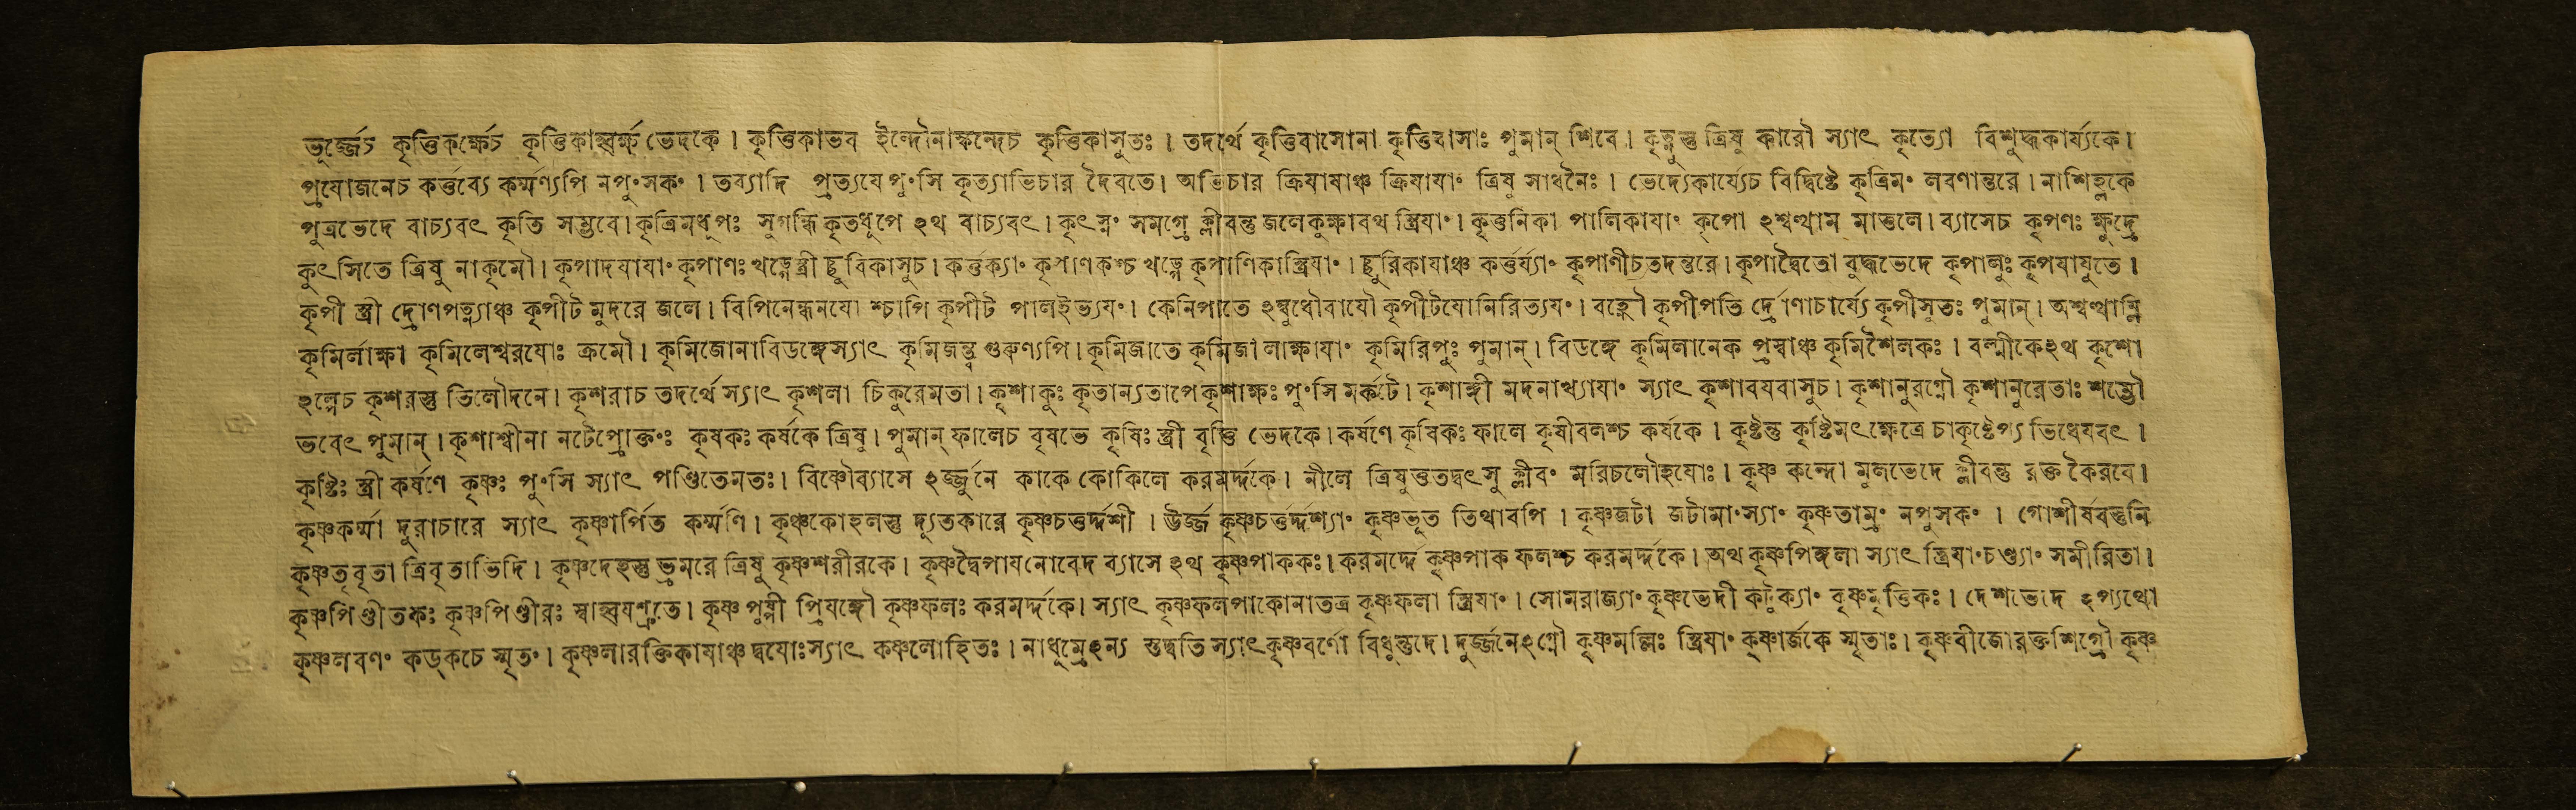 ভূর্জ্জেচ কৃত্তিকর্ক্ষেচ কৃত্তিকাস্বর্ক্ষ ভেদকে। কৃত্তিকাভব ইন্দৌনাস্কন্দেচ কৃত্তিকাসুতঃ। তদর্থে কৃত্তিবাসোনা কৃত্তিবাসাঃ পুমান্ শিবে। কৃত্নুস্তু ত্রিষু কারৌ স্যাৎ কৃত্যো বিশুদ্ধকার্য্যকে।
প্রযোজনেচ কর্ত্তব্যে কর্ম্মণ্যপি নপুংসকং। তব্যাদি প্রত্যযে পুংসি কৃত্যাভিচার দৈবতে। অভিচার ক্রিযাযাঞ্চ ক্রিযাযাং ত্রিষু সাধনৈঃ। ভেদ্যেকার্য্যেচ বিদ্বিষ্টে কৃত্রিমং লবণান্তরে। নাশিহ্লকে
পুত্রভেদে বাচ্যবৎ কৃতি সম্ভবে। কৃত্রিমধুপঃ সুগন্ধি কৃতধূপে ঽথ বাচ্যবৎ। কৃৎস্নং সমগ্রে ক্লীবন্তু জলেকুক্ষাবথ স্ত্রিযাং। কৃত্তনিকা পালিকাযাং কৃপো ঽশ্বত্থাম মাতুলে। ব্যাসেচ কৃপণঃ ক্ষুদ্রে
কুৎসিতে ত্রিষু নাকৃমৌ। কৃপাদযাযাং কৃপাণঃ খড়্গেস্ত্রী ছুরিকাসুচ। কর্ত্তক্যাং কৃপাণকশ্চ খড়্গে কৃপাণিকাস্ত্রিযাং। ছুরিকাযাঞ্চ কর্ত্তর্য্যাং কৃপাণীচতদন্তরে। কৃপাদ্বৈতো বুদ্ধভেদে কৃপালুঃ কৃপযাযুতে।
কৃপী স্ত্রী দ্রোণপত্ন্যাঞ্চ কৃপীট মুদরে জলে। বিপিনেন্ধনযো শ্চাপি কৃপীট পালইভ্যযং। কেনিপাতে ঽম্বুধৌবাযৌ কৃপীটযোনিরিত্যযং। বহ্নৌ কৃপীপতি র্দ্রোণাচার্য্যে কৃপীসুতঃ পুমান্। অশ্বত্থাম্নি
কৃমির্লাক্ষা কৃমিলেশ্বরযোঃ ক্রমৌ। কৃমিজোনাবিডঙ্গেস্যাৎ কৃমিজন্তু গুরুণ্যপি। কৃমিজাতে কৃমিজা লাক্ষাযাং কৃমিরিপুঃ পুমান্। বিডঙ্গে কৃমিলানেক প্রস্বাঞ্চ কৃমিশৈলকঃ। বল্মীকেঽথ কৃশো
ঽল্পেচ কৃশরস্তু তিলৌদনে। কৃশরাচ তদর্থে স্যাৎ কৃশলা চিকুরেমতা। কৃশাকুঃ কৃতান্যতাপে কৃশাক্ষঃ পুংসি মর্কটে। কৃশাঙ্গী মদনাখ্যাযাং স্যাৎ কৃশাবযবাসুচ। কৃশানুরগ্নৌ কৃশানুরেতাঃ শম্ভৌ
ভবেৎ পুমান্। কৃশাশ্বীনা নটেপ্রোক্তঃ কৃষকঃ কর্ষকে ত্রিষু। পুমান্ ফালেচ বৃষভে কৃষিঃ স্ত্রী বৃত্তি ভেদকে। কর্ষণে কৃষিকঃ ফালে কৃষীবলশ্চ কর্ষকে। কৃষ্টন্তু কৃষ্টিমৎক্ষেত্রে চাকৃষ্টেপ্য ভিধেযবৎ।
কৃষ্টিঃ স্ত্রী কর্ষণে কৃষ্ণঃ পুংসি স্যাৎ পণ্ডিতেমতঃ। বিষ্ণৌব্যাসে ঽর্জ্জুনে কাকে কোকিলে করমর্দ্দকে। নীলে ত্রিষুত্ততদ্বৎসু ক্লীবং মরিচলৌহযোঃ। কৃষ্ণ কন্দো মূলভেদে ক্লীবন্তু রক্ত কৈরবে।
কৃষ্ণকর্ম্মা দুরাচারে স্যাৎ কৃষ্ণার্পিত কর্ম্মণি। কৃষ্ণকোহলস্তু দ্যুতকারে কৃষ্ণচতুর্দ্দশী। উর্জ্জ কৃষ্ণচতুর্দ্দশ্যাং কৃষ্ণভূত তিথাবপি। কৃষ্ণজটা জটামাংস্যাং কৃষ্ণতাম্রং নপুসকং। গোশীর্ষবস্তুনি
কৃষ্ণতৃবৃতা ত্রিবৃতাভিদি। কৃষ্ণদেহস্তু ভ্রমরে ত্রিষু কৃষ্ণশরীরকে। কৃষ্ণদ্বৈপাযনোবেদ ব্যাসে ঽথ কৃষ্ণপাককঃ। করমর্দ্দে কৃষ্ণপাক ফলশ্চ করমর্দ্দকে। অথ কৃষ্ণপিঙ্গলা স্যাৎ স্ত্রিযাং চণ্ড্যাং সমীরিতা।
কৃষ্ণপিণ্ডীতকঃ কৃষ্ণপিণ্ডীরঃ স্বাহ্বযশ্রুতে। কৃষ্ণ পুষ্পী প্রিযঙ্গৌ কৃষ্ণফলঃ করমর্দ্দকে। স্যাৎ কৃষ্ণফলপাকোনাতত্র কৃষ্ণফলা স্ত্রিযাং। সোমরাজ্যাং কৃষ্ণভেদী কটুক্যাং কৃষ্ণমৃত্তিকঃ। দেশভেদে ঽপ্যথো
কৃষ্ণলবণং কড্কচে স্মৃতং। কৃষ্ণলারক্তিকাযাঞ্চ দ্বযোঃস্যাৎ কৃষ্ণলোহিতঃ। নাধূম্রেঽন্য স্তদ্বতি স্যাৎকৃষ্ণবর্ণো বিধুন্তুদে। দুর্জ্জনেঽগ্নৌ কৃষ্ণমল্লিঃ স্ত্রিযাং কৃষ্ণার্জকে স্মৃতাঃ। কৃষ্ণবীজোরক্তশিগ্রৌ কৃষ্ণ